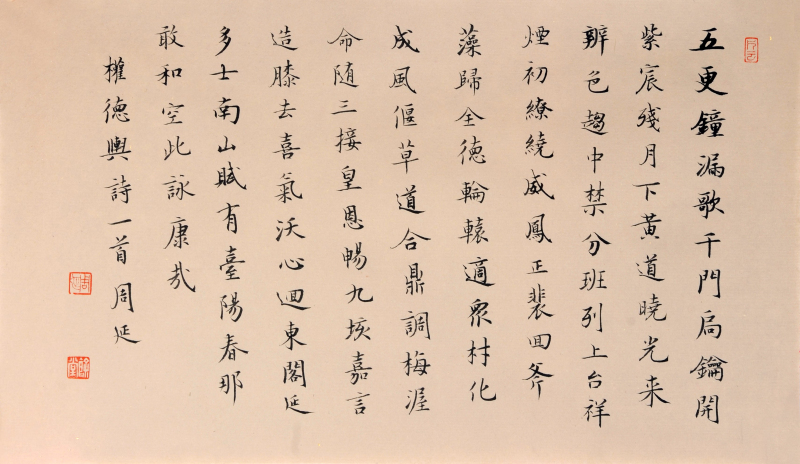 五更鐘漏歇千門扃鑰開
紫宸殘月下黃道曉光来
辨色趨中禁分班列上台祥
煙初繚繞威鳳正裴回斧
藻歸全德輪轅適眾材化
成風偃草道合鼎調梅渥
命随三接皇恩暢九垓嘉言
造膝去喜氣沃心迴東閣延
多士南山賦有臺陽春那
敢和空此詠康哉
權德輿詩一首周延